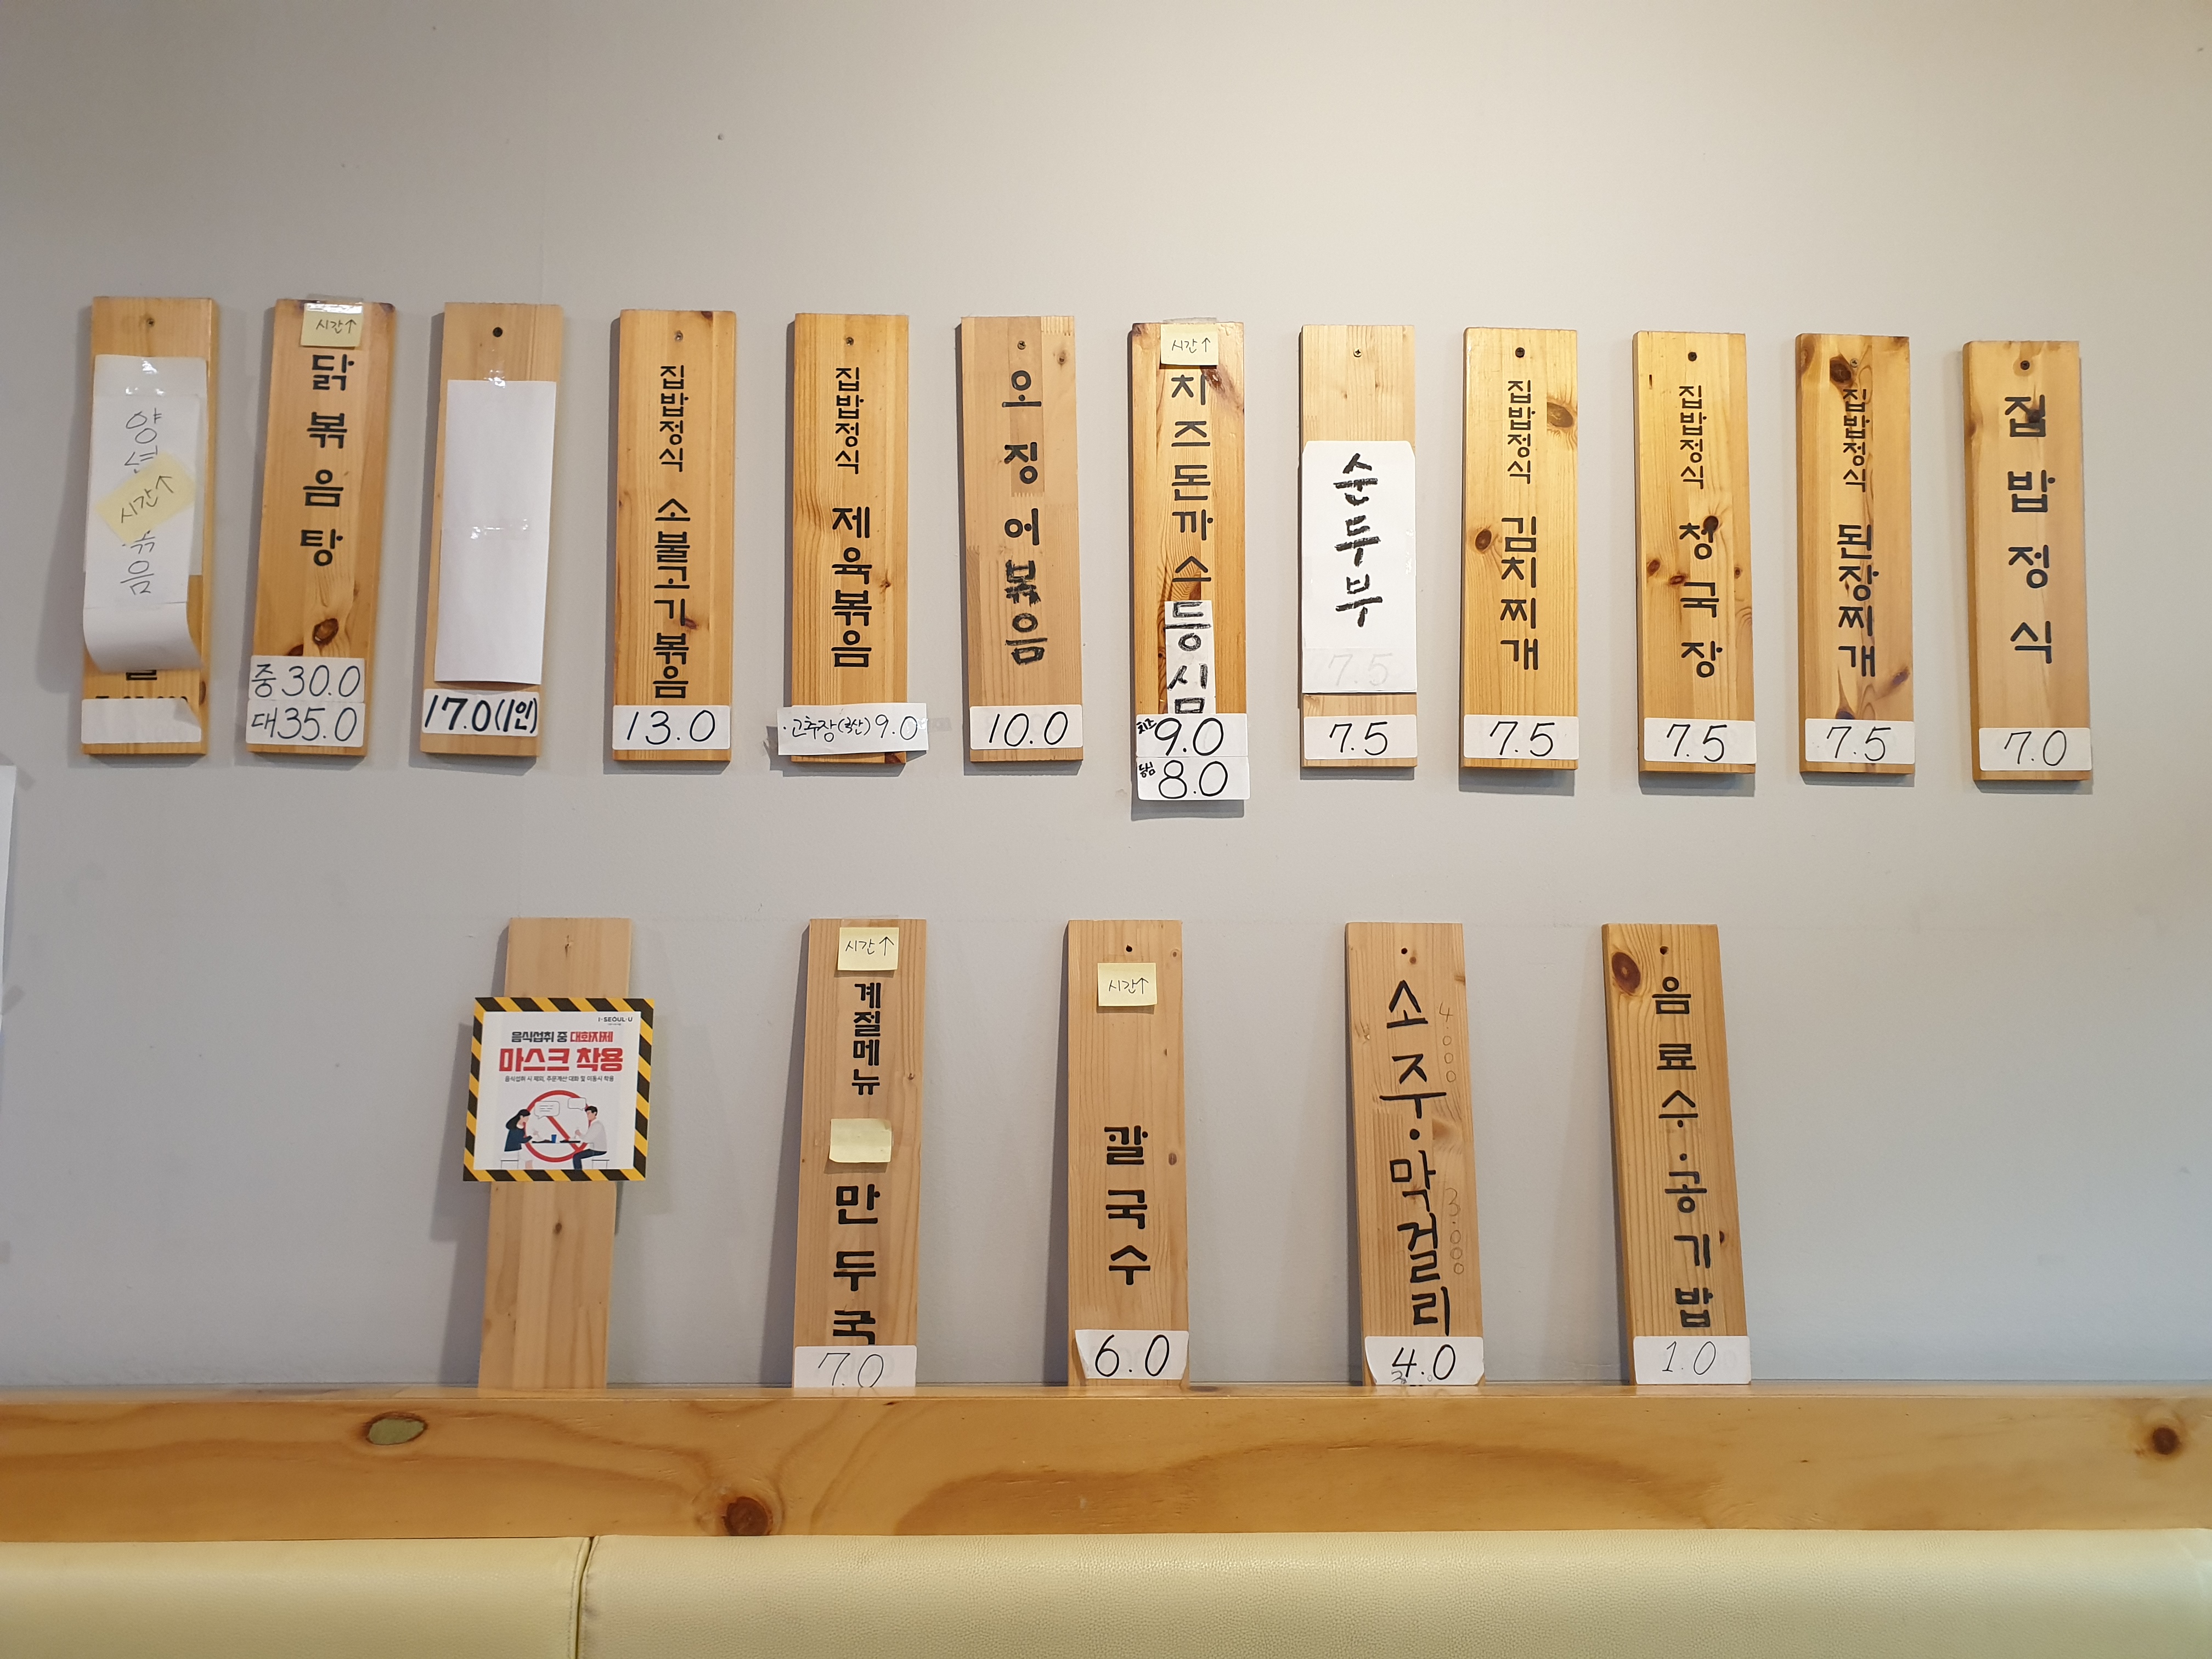 양념
시간↑
볶음
시간↑
닭볶음탕
중 30.0
대 35.0
17.0 (1인)
집밥정식 소불고기볶음
13.0
집밥정식 제육볶음
·고추장(국산) 9.0
오징어볶음
10.0
시간↑
치즈돈까스
등심
치즈 9.0
등심 8.0
순두부
7.5
7.5
집밥정식 김치찌개
7.5
집밥정식 청국장
7.5
집밥정식 된장찌개
7.5
집밥정식
7.0
I·SEOUL·U
음식섭취 중 대화자제
마스크 착용
음식섭취 시 제외, 주문계산 대화 및 이동시 착용
시간↑
계절메뉴
만두국
7.0
시간↑
칼국수
6.0
소주·막걸리
4000
3.000
4.0
음료수·공기밥
1.0